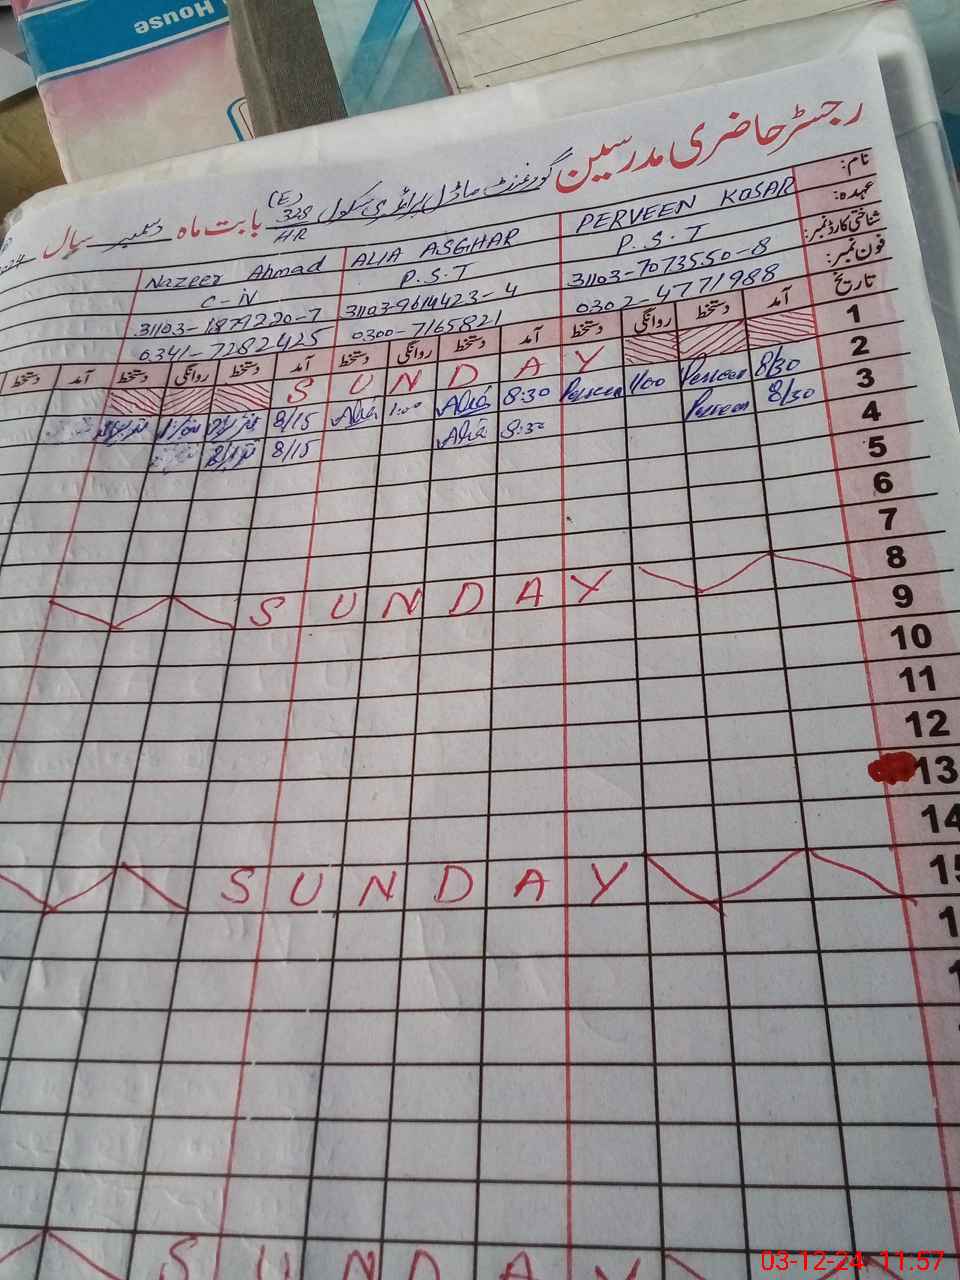 House
رجسٹر حاضری مدرسین گورنمنٹ ماڈل پرائمری سکول 328/HR (E) بابت ماہ دسمبر سال
نام:
PERVEEN KOSAR ALIA ASGHAR Nazeer Ahmad
عہدہ:
P.S.T P.S.T C-iv
شناختی کارڈ نمبر:
31103-7073550-8 31103-9614423-4 31103-1879220-7
فون نمبر:
0302-4771988 0300-7165821 0341-7282425
تاریخ آمد دستخط روانگی دستخط آمد دستخط روانگی دستخط آمد دستخط روانگی دستخط آمد دستخط
1 S U N D A Y
2 8/30 Perveen 1/00 Perveen 8:30 Alia 1:00 Alia 8/15
3 8/30 Perveen 8:30 Alia 8/15
4
5
6
7
8 S U N D A Y
9
10
11
12
13
14
15 S U N D A Y
S U N D A Y
03-12-24 11:57